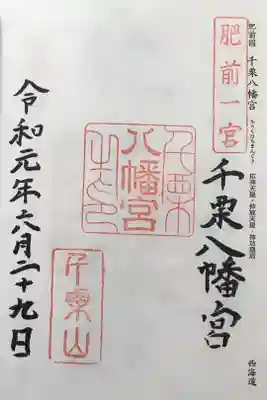 肥前國 千栗八幡宮 ちりくはちまんぐう 応神天皇・仲哀天皇・神功皇后 西海道
肥前一宮
千栗八幡宮
千栗八幡宮之印
千栗山
令和元年六月二十九日